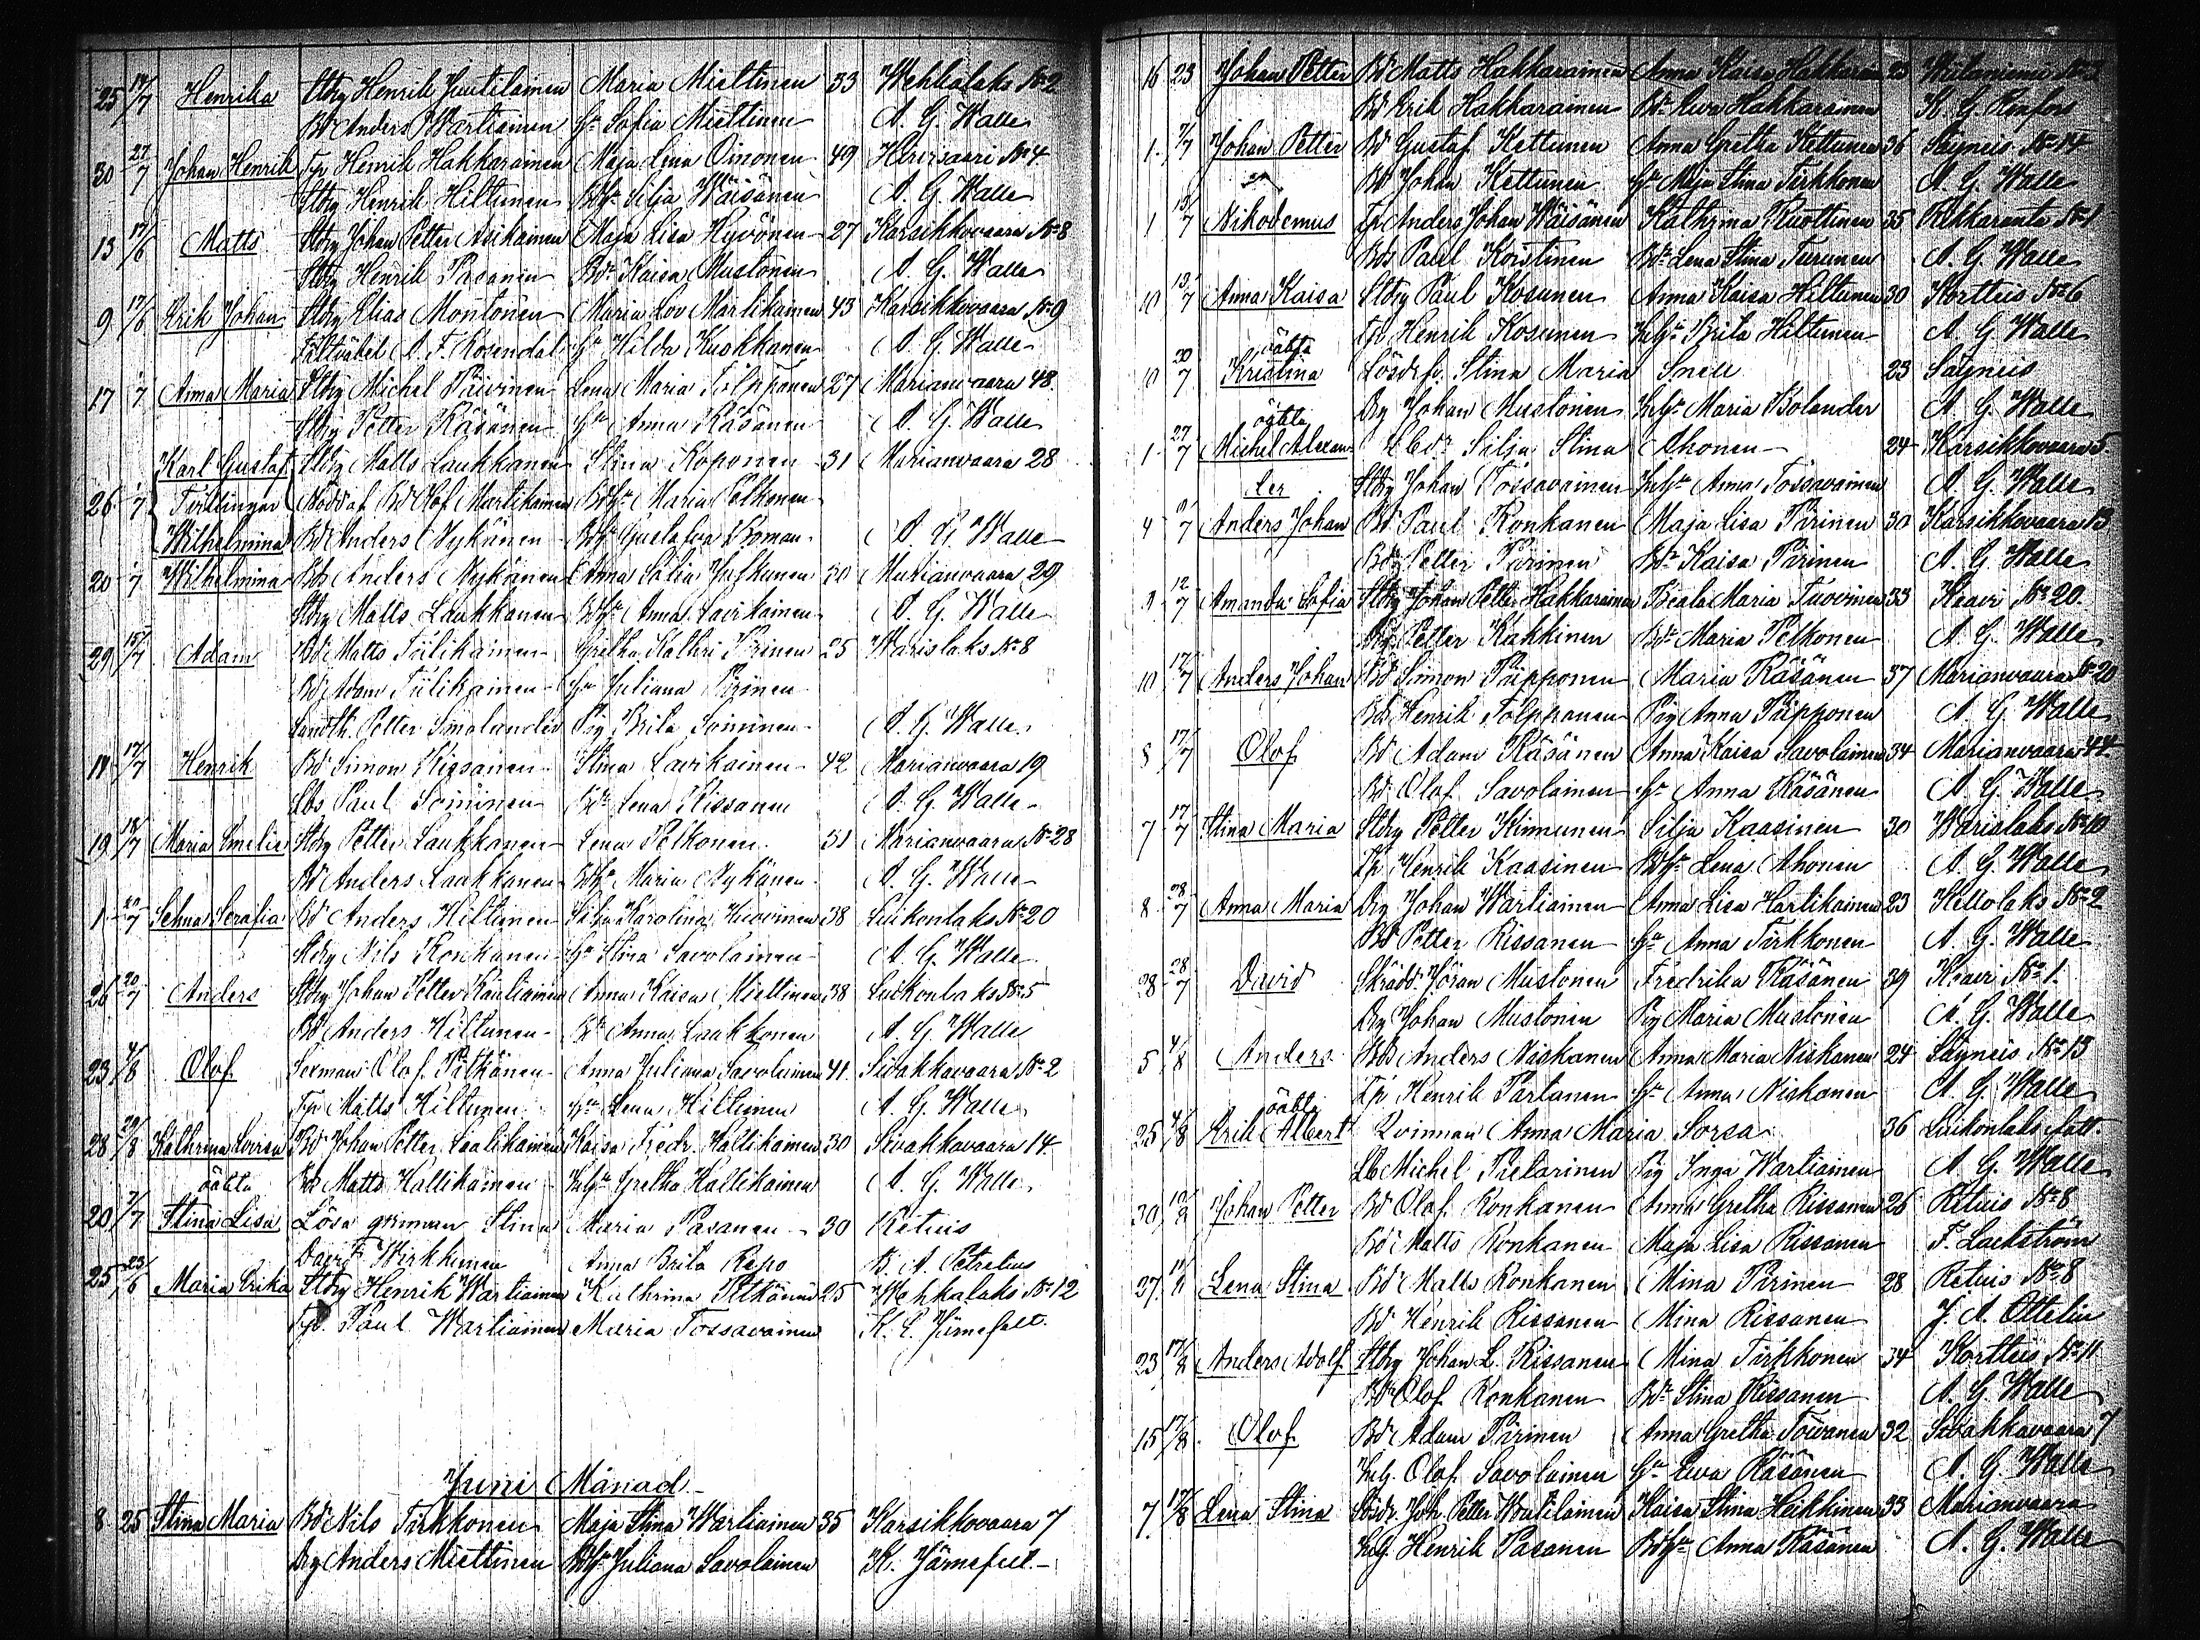 25 17/7 Henrika Stdrg Henrik Juutilainen Maria Miettinen 33 Wehkalaks № 2
Bd Anders Wartiainen Hu Sofia Miettinen A. G. Walle
30 27/7 Johan Henrik Tp Henrik Hakkarainen Maja Lena Oinonen 49 Hirvisaari № 4
Stdrg Henrik Hiltunen Bdhu Silja Wäisänen A. G. Walle
13 17/6 Matts Stdrg Johan Petter Asikainen Maja Lisa Hyvönen 27 Karsikkovaara № 8
Stdrg Henrik Pasanen Bdr Kaisa Mustonen A. G. Walle
9 17/6 Erik Johan Stdrg Elias Montonen Maria Lov Martikainen 43 Karsikkovaara № 9
Fältväbel A. F. Rosendal Hu Hilda Kuokkanen A. G. Walle
17 1/7 Anna Maria Stdrg Michel Päivinen Lena Maria Tolpponen 27 Marianvaara 48.
Stdrg Petter Räsänen Hu Anna Räsänen A. G. Walle
Karl Gustaf Stdrg Matts Laukkanen Stina Koponen 31 Marianvaara 28
26 1/7 Tvillingar Nöddaf Bd Olof Martikainen Bdhu Maria Pelkonen
Wilhelmina Bd Anders Nykänen Bdhu Gustafva Roman A. G. Walle
20 1/7 Wilhelmina Bds Anders Nykänen Anna Sofia Juskanen 30 Marianvaara 29
Stdrg Matts Laukkanen Bdhu Anna Lavikainen A. G. Walle
29 15/7 Adam Bd Matts Tiilikainen Gretha Kathri Pirinen 25 Warislaks № 8
Bd Adam Tiilikainen Hu Juliana Pirinen
Landth. Petter Smolander Pig Brita Soininen A. G. Walle
14 17/7 Henrik Bd Simon Rissanen Stina Lavikainen 42 Marianvaara 19
Lbs Paul Soininen Bdr Lena Rissanen A. G. Walle
19 18/7 Maria Emelie Stdrg Petter Laukkanen Lena Pelkonen 31 Marianvaara № 28
Bd Anders Laukkanen Bdhu Maria Nykänen A. G. Walle
1 20/7 Selma Serafia Bd Anders Hiltunen Sofia Karolina Tuovinen 38 Luikonlaks № 20
Stdrg Nils Ronkanen Hu Stina Savolainen A. G. Walle
26 20/7 Anders Stdrg Johan Petter Rautiainen Anna Kaisa Miettinen 38 Luikonlaks № 5
Bd Anders Hiltunen Bdr Anna Laakkonen A. G. Walle
23 4/8 Olof Sexman Olof Pitkänen Anna Juliana Savolainen 41 Sivakkavaara № 2
Tp Matts Hiltunen Hu Lena Hiltunen A. G. Walle
28 29/8 Kathrina Lovisa Bd Johan Petter Kaatikainen Kaisa Fredr. Haltikainen 30 Sivakkavaara 14
oäkta Bds Matts Haltikainen Inhu Gretha Haltikainen A. G. Walle
20 7/7 Stina Lisa Lösa qvinnan Stina Maria Pasanen 30 Retuis
David Wirkkunen Anna Brita Repo B. A. Petrelius
25 23/6 Maria Erika Stdrg Henrik Wartiainen Kathrina Pitkänen 25 Wehkalaks № 12
Tp. Paul Wartiainen Maria Tossavainen K. E. Järnefelt.
Juni Månad
8 25 Stina Maria Bd Nils Tirkkonen Maja Stina Wartiainen 35 Karsikkovaara 7
Drg Anders Miettinen Bdhu Juliana Savolainen K. Järnefelt.
16 23 Johan Petter Bd Matts Hakkarainen Anna Kaisa Hakkarain 23
Bd Erik Hakkarainen Bdr Ewa Hakkarainen K. G. Renfors
1 7/7 Johan Petter Bd Gustaf Kettunen Anna Gretha Kettunen 36 Säyneis № 14
Bd Johan Kettunen Hu Maja Stina Tirkkonen A. G. Walle
1 13/7 Nikodemus Tp Anders Johan Wäisänen Kathrina Ruottinen 35 Rekkaranta № 1
Bds Paul Koistinen Bdr Lena Stina Turunen A. G. Walle
10 13/7 Anna Kaisa Stdrg Paul Kosunen Anna Kaisa Hiltunen 30 Kortteis № 6
Tp Henrik Kosunen Inhu Brita Hiltunen A. G. Walle
oäkta
10 20/7 Kristina Lösdrf. Stina Maria Snell 23 Säyneis
Drg Johan Mustonen Inhu Maria Bolander A. G. Walle
oäkta
1 27/7 Michel Alexan- Lbdr Silja Stina Ahonen 24 Karsikkovaara 5.
der Stdrg Johan Tossavainen Inhu Anna Tossavainen A. G. Walle
4 9/7 Anders Johan Bd Paul Ronkanen Maja Lisa Pirinen 30 Karsikkovaara 13
Bdr Petter Pirinen Bdr Kaisa Pirinen A. G. Walle
9 12/7 Amanda Sofia Stdrg Johan Petter Hakkarainen Beata Maria Tuovinen 33 Kaavi № 20.
Drg Petter Kakkinen Bdr Maria Pelkonen A. G. Walle
10 17/7 Anders Johan Bd Simon Piipponen Maria Räsänen 37 Marianvaara № 20
Bds Henrik Tolpponen Pig Anna Piipponen A. G. Walle
8 17/7 Olof Bd Adam Räsänen Anna Kaisa Savolainen 34 Marianvaara 44
Bd. Olof Savolainen Hu Anna Räsänen A. G. Walle
7 17/7 Stina Maria Stdrg Petter Kinnunen Silja Kaasinen 30 Warislaks № 10
Tp Henrik Kaasinen Bdhu Lena Ahonen A. G. Walle
8 28/7 Anna Maria Drg Johan Wartiainen Anna Lisa Hartikainen 23 Kettolaks № 2
Bd Petter Rissanen Hu Anna Tirkkonen A. G. Walle
28 28/7 David Skrädd. Göran Mustonen Fredrika Räsänen 39 Kaavi № 1.
Drg Johan Mustonen Pig Maria Mustonen A. G. Walle
5 4/8 Anders Bds Anders Niskanen Anna Maria Niskanen 24 Säyneis № 13
Tp Henrik Partanen Hu Anna Niskanen A. G. Walle
oäkta
25 4/8 Erik Albert Kvinnan Anna Maria Sorsa 36 Luikonlaks fatt.
Lb Michel Pietarinen Pig Inga Wartiainen A. G. Walle
30 12/8 Johan Petter Bd Olof Ronkanen Anna Gretha Rissanen 26 Retuis № 8
Bd Matts Ronkanen Maja Lisa Rissanen F. Lackström
27 12/8 Lena Stina Bd Matts Ronkanen Mina Pirinen 28 Retuis № 8
Bd Henrik Rissanen Mina Rissanen J. A. Ottelin
23 17/8 Anders Adolf Stdrg Johan L. Rissanen Mina Tirkkonen 34 Kortteis № 11
Bd Olof Ronkanen Bdr Stina Rissanen A. G. Walle
15 17/8 Olof Bd Adam Pirinen Anna Gretha Toivanen 32 Sivakkavaara 7
Inh. Olof Savolainen Hu Ewa Räsänen A. G. Walle
7 17/8 Lena Stina Stdr. Joh. Petter Woutilainen Kaisa Stina Heikkinen 33 Marianvaara
Inh. Henrik Pasanen Bdhu Anna Räsänen A. G. Walle